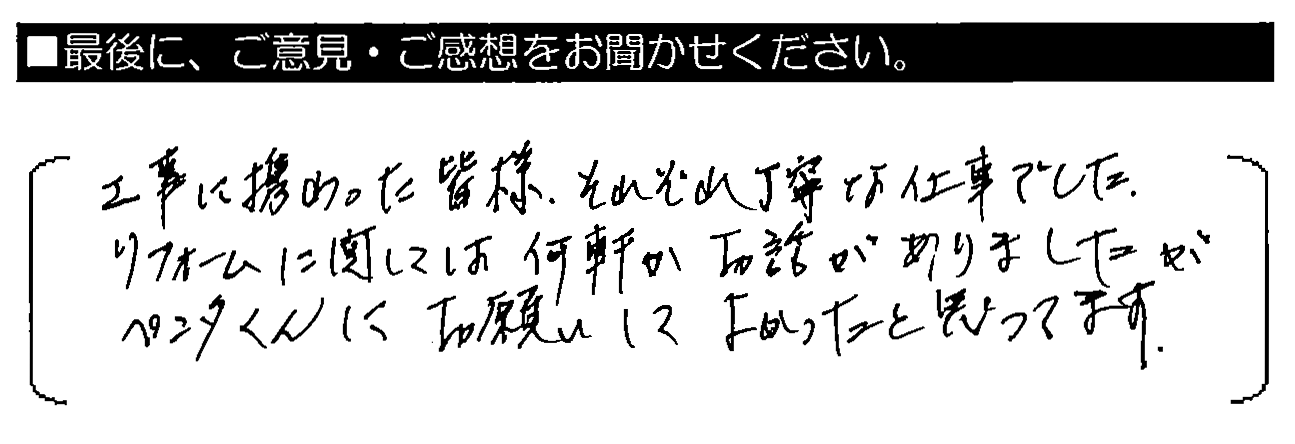 ■最後に、ご意見・ご感想をお聞かせください。
工事に携わった皆様、それぞれ丁寧な仕事でした.
リフォームに関しては何軒かお話がありましたが
ペンタくんにお願いしてよかったと思ってます.